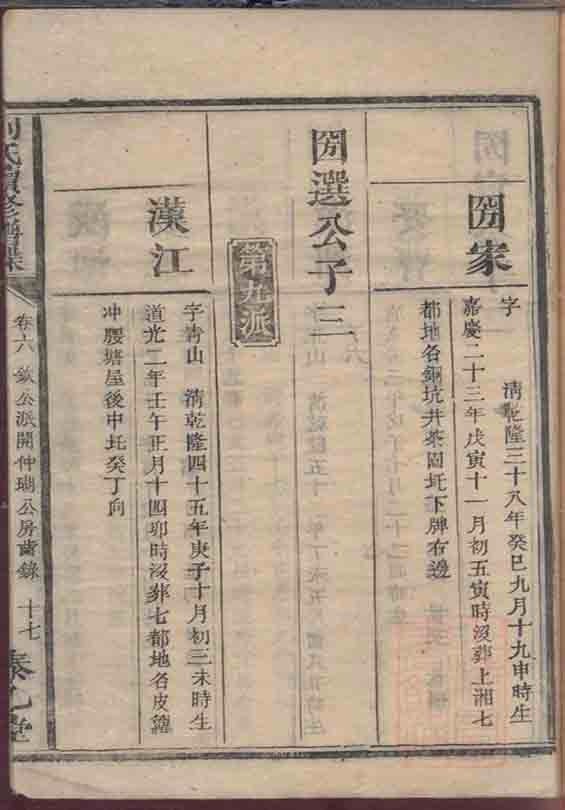 圀家
字　清乾隆三十八年癸巳九月十九申時生
嘉慶二十三年戊寅十一月初五寅時沒葬上湘七
都地名銅坑井茶園圫下牌右邊
選公子三
第九派
漢江
字青山　清乾隆四十五年庚子十月初三未時生
道光二年壬午正月十四卯時沒葬七都地名皮籮
冲腰塘屋後中圫癸丁向
氏續修譜
卷六　欽公派開仲瑚公房齒錄　十七
泰乙堂